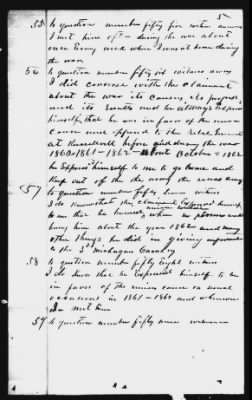 5
55 To question number fifty five witness answers
I met him oft - during the war about
once Every week when I was at home during
the war
56 To question number fifty six witness says
I did converse with the claimant
about the war its causes, its progress
and its results and he always Expressed
himself, that he was in favor of the union
cause and opposed to the rebel
at Russellville before and during the war
1860 - 1861 - 1862 - about October - 1862
he Expressed himself to me to go home and
keep out of the the army
57 To question number fifty seven witness
I do know that the claimant Expressed himself
to me that he
him about the year 1862 and many
other things he did in giving
to the 2d Michagan Cavalry
58 To question number fifty Eight witness
I do know that he Expressed himself to be
in favor of the union cause on several
occasions in 1861 - 1862 and whenever
I met him
59 To question number fifty nine witness